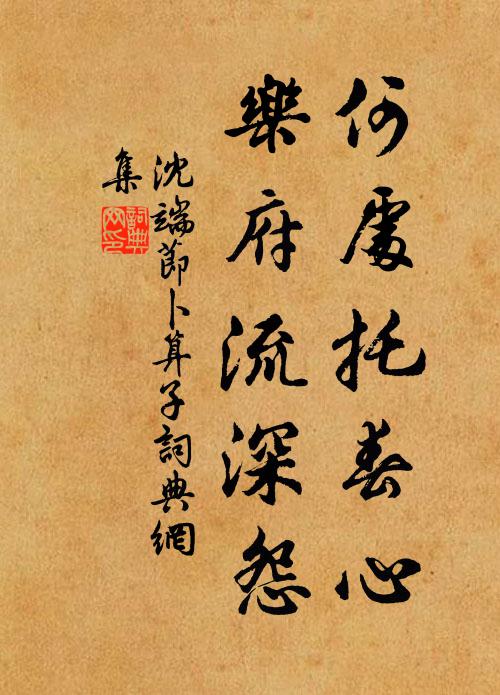 何處托春心
樂府流深怨
沈端節卜算子詞典網
集
詞典網印